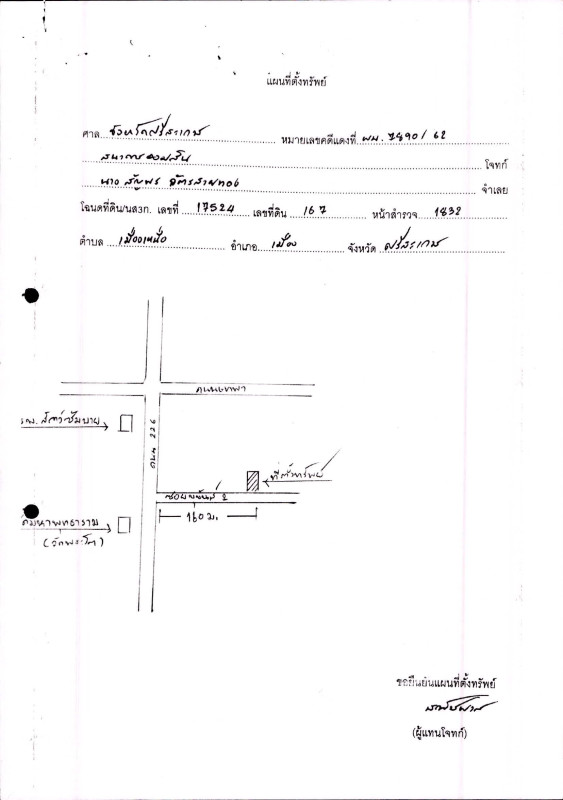 แผนที่ตั้งทรัพย์
ศาล จังหวัดศรีสะเกษ หมายเลขคดีแดงที่ ผบ. 7890/62
ธนาคารออมสิน โจทก์
นาง จำเลย
โฉนดที่ดิน/นส3ก. เลขที่ 17524 เลขที่ดิน 167 หน้าสำรวจ 1832
ตำบล เมืองเหนือ อำเภอ เมือง จังหวัด ศรีสะเกษ
รพ. สัตว์ซัมบาย
ถนน 226
ที่ตั้งทรัพย์
2
160 ม.
มหาพุทธาราม
(วัดพระโต)
ขอยืนยันแผนที่ตั้งทรัพย์
(ผู้แทนโจทก์)